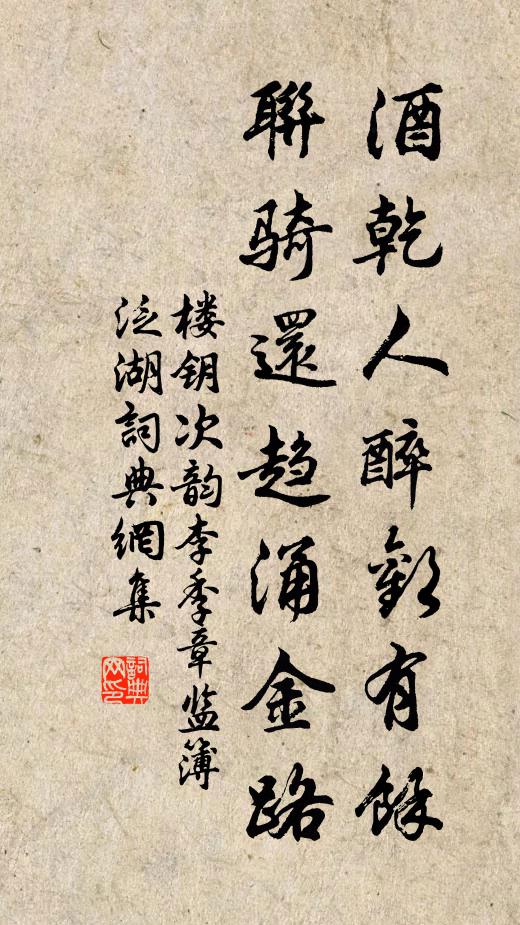 酒乾人醉歡有餘
聯騎還趋涌金路
楼钥次韵李季章监簿
泛湖詞典網集
詞典网印